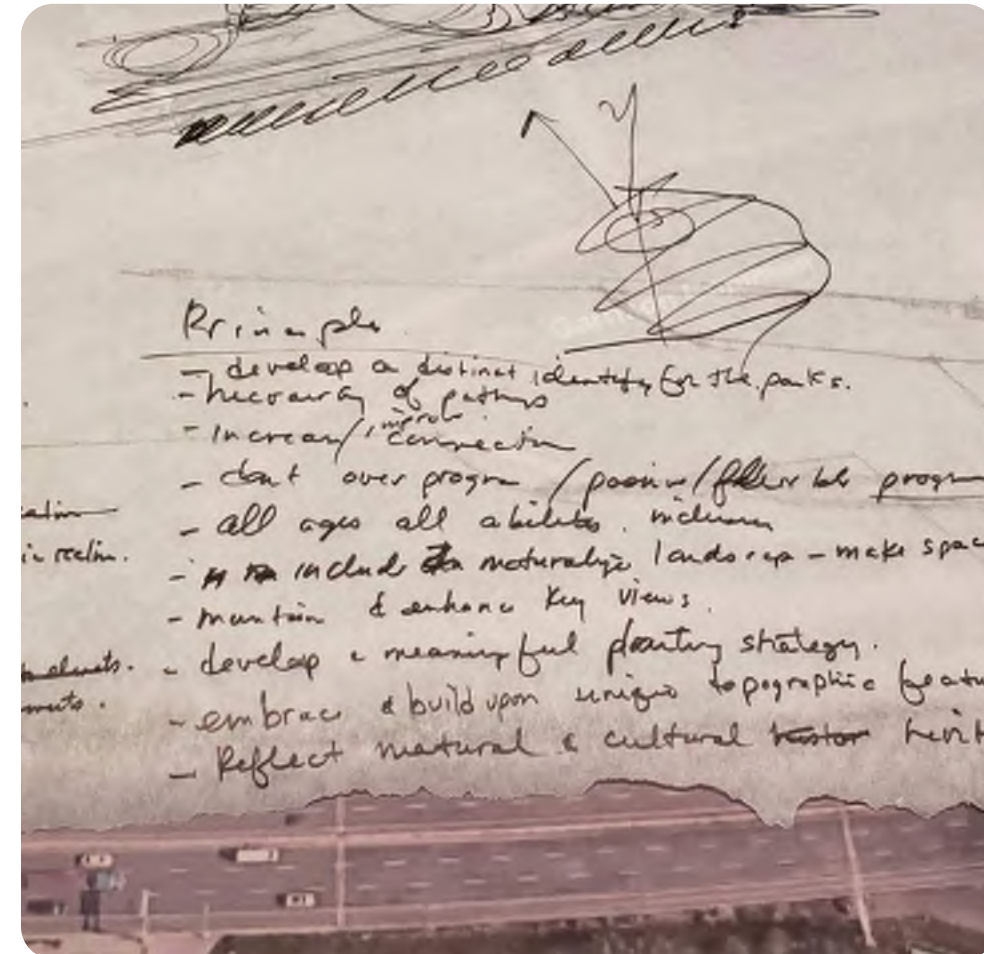 Principles
- develop a distinct identity for the parks.
- hierarchy of pathways
- Increase/improve connection
- dont over program / passive/flexible program
- all ages all abilities. inclusion
- include naturalize landscap - make spac
- maintain & enhance key views.
- develop a meaningful planting strategy.
- embrace & build upon unique topographic featu
- Reflect natural & cultural
ic realm.